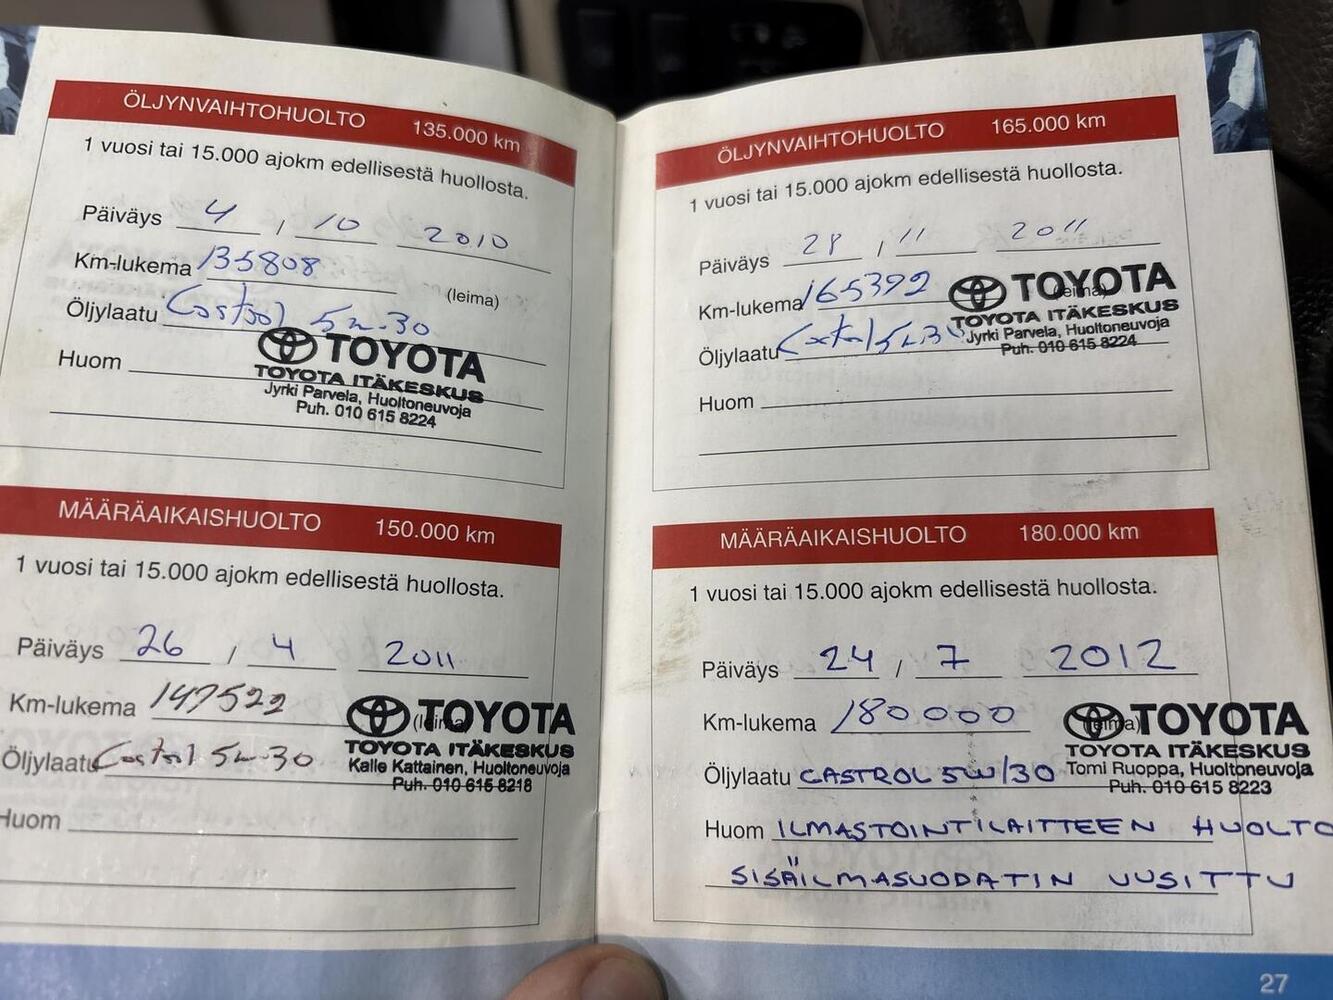 ÖLJYNVAIHTOHUOLTO 135.000 km
1 vuosi tai 15.000 ajokm edellisestä huollosta.
Päiväys 4 , 10 2010
Km-lukema 135808
(leima)
Öljylaatu Castrol 5w-30
Huom
TOYOTA
TOYOTA ITÄKESKUS
Jyrki Parvela, Huoltoneuvoja
Puh. 010 615 8224
MÄÄRÄAIKAISHUOLTO 150.000 km
1 vuosi tai 15.000 ajokm edellisestä huollosta.
Päiväys 26 , 4 2011
Km-lukema 147522
(leima)
TOYOTA
TOYOTA ITÄKESKUS
Kalle Kattainen, Huoltoneuvoja
Puh. 010 615 8218
Öljylaatu Castrol 5w-30
Huom
ÖLJYNVAIHTOHUOLTO 165.000 km
1 vuosi tai 15.000 ajokm edellisestä huollosta.
Päiväys 28 , 11 2011
Km-lukema 165392
(leima)
TOYOTA
TOYOTA ITÄKESKUS
Jyrki Parvela, Huoltoneuvoja
Puh. 010 615 8224
Öljylaatu Castrol 5w30
Huom
MÄÄRÄAIKAISHUOLTO 180.000 km
1 vuosi tai 15.000 ajokm edellisestä huollosta.
Päiväys 24 , 7 2012
Km-lukema 180000
(leima)
TOYOTA
TOYOTA ITÄKESKUS
Tomi Ruoppa, Huoltoneuvoja
Puh. 010 615 8223
Öljylaatu CASTROL 5W/30
Huom ILMASTOINTILAITTEEN HUOLTO
SISÄILMASUODATIN UUSITTU
27